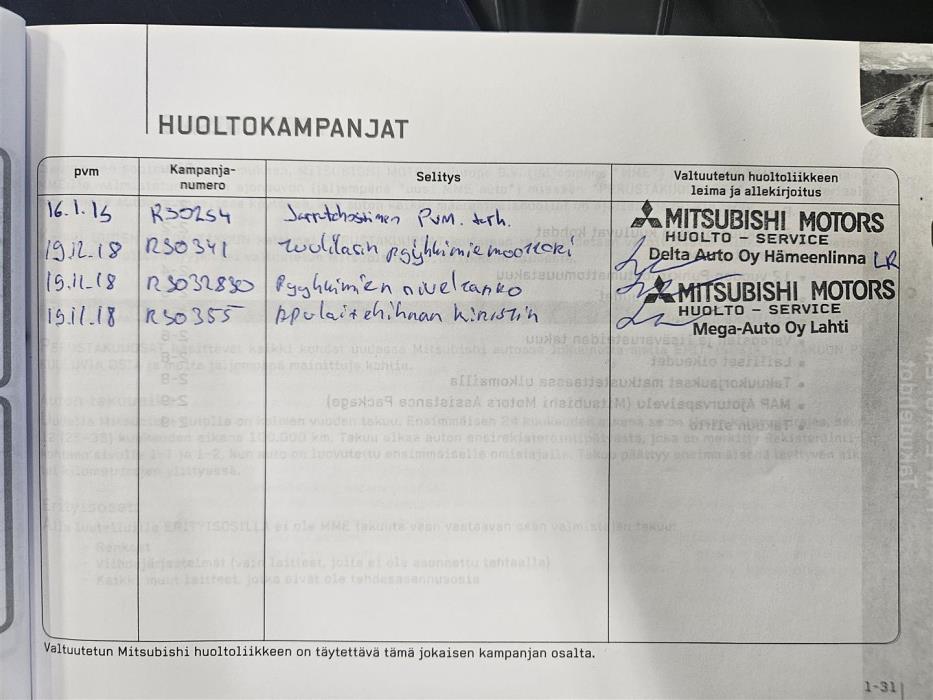 HUOLTOKAMPANJAT
pvm
Kampanja-
numero
Selitys
Valtuutetun huoltoliikkeen
leima ja allekirjoitus
16.1.15 R30254 Jarrutehostimen Pvm. tark.
MITSUBISHI MOTORS
HUOLTO - SERVICE
Delta Auto Oy Hämeenlinna LR
19.12.18 RS0341 tuulilasin pyyhkimiemoottori
19.12.18 RS032830 Pyyhkimien niveltanko
MITSUBISHI MOTORS
HUOLTO - SERVICE
Mega-Auto Oy Lahti
19.12.18 RS0355 Apulaitehihnan kiristin
Valtuutetun Mitsubishi huoltoliikkeen on täytettävä tämä jokaisen kampanjan osalta.
1-31